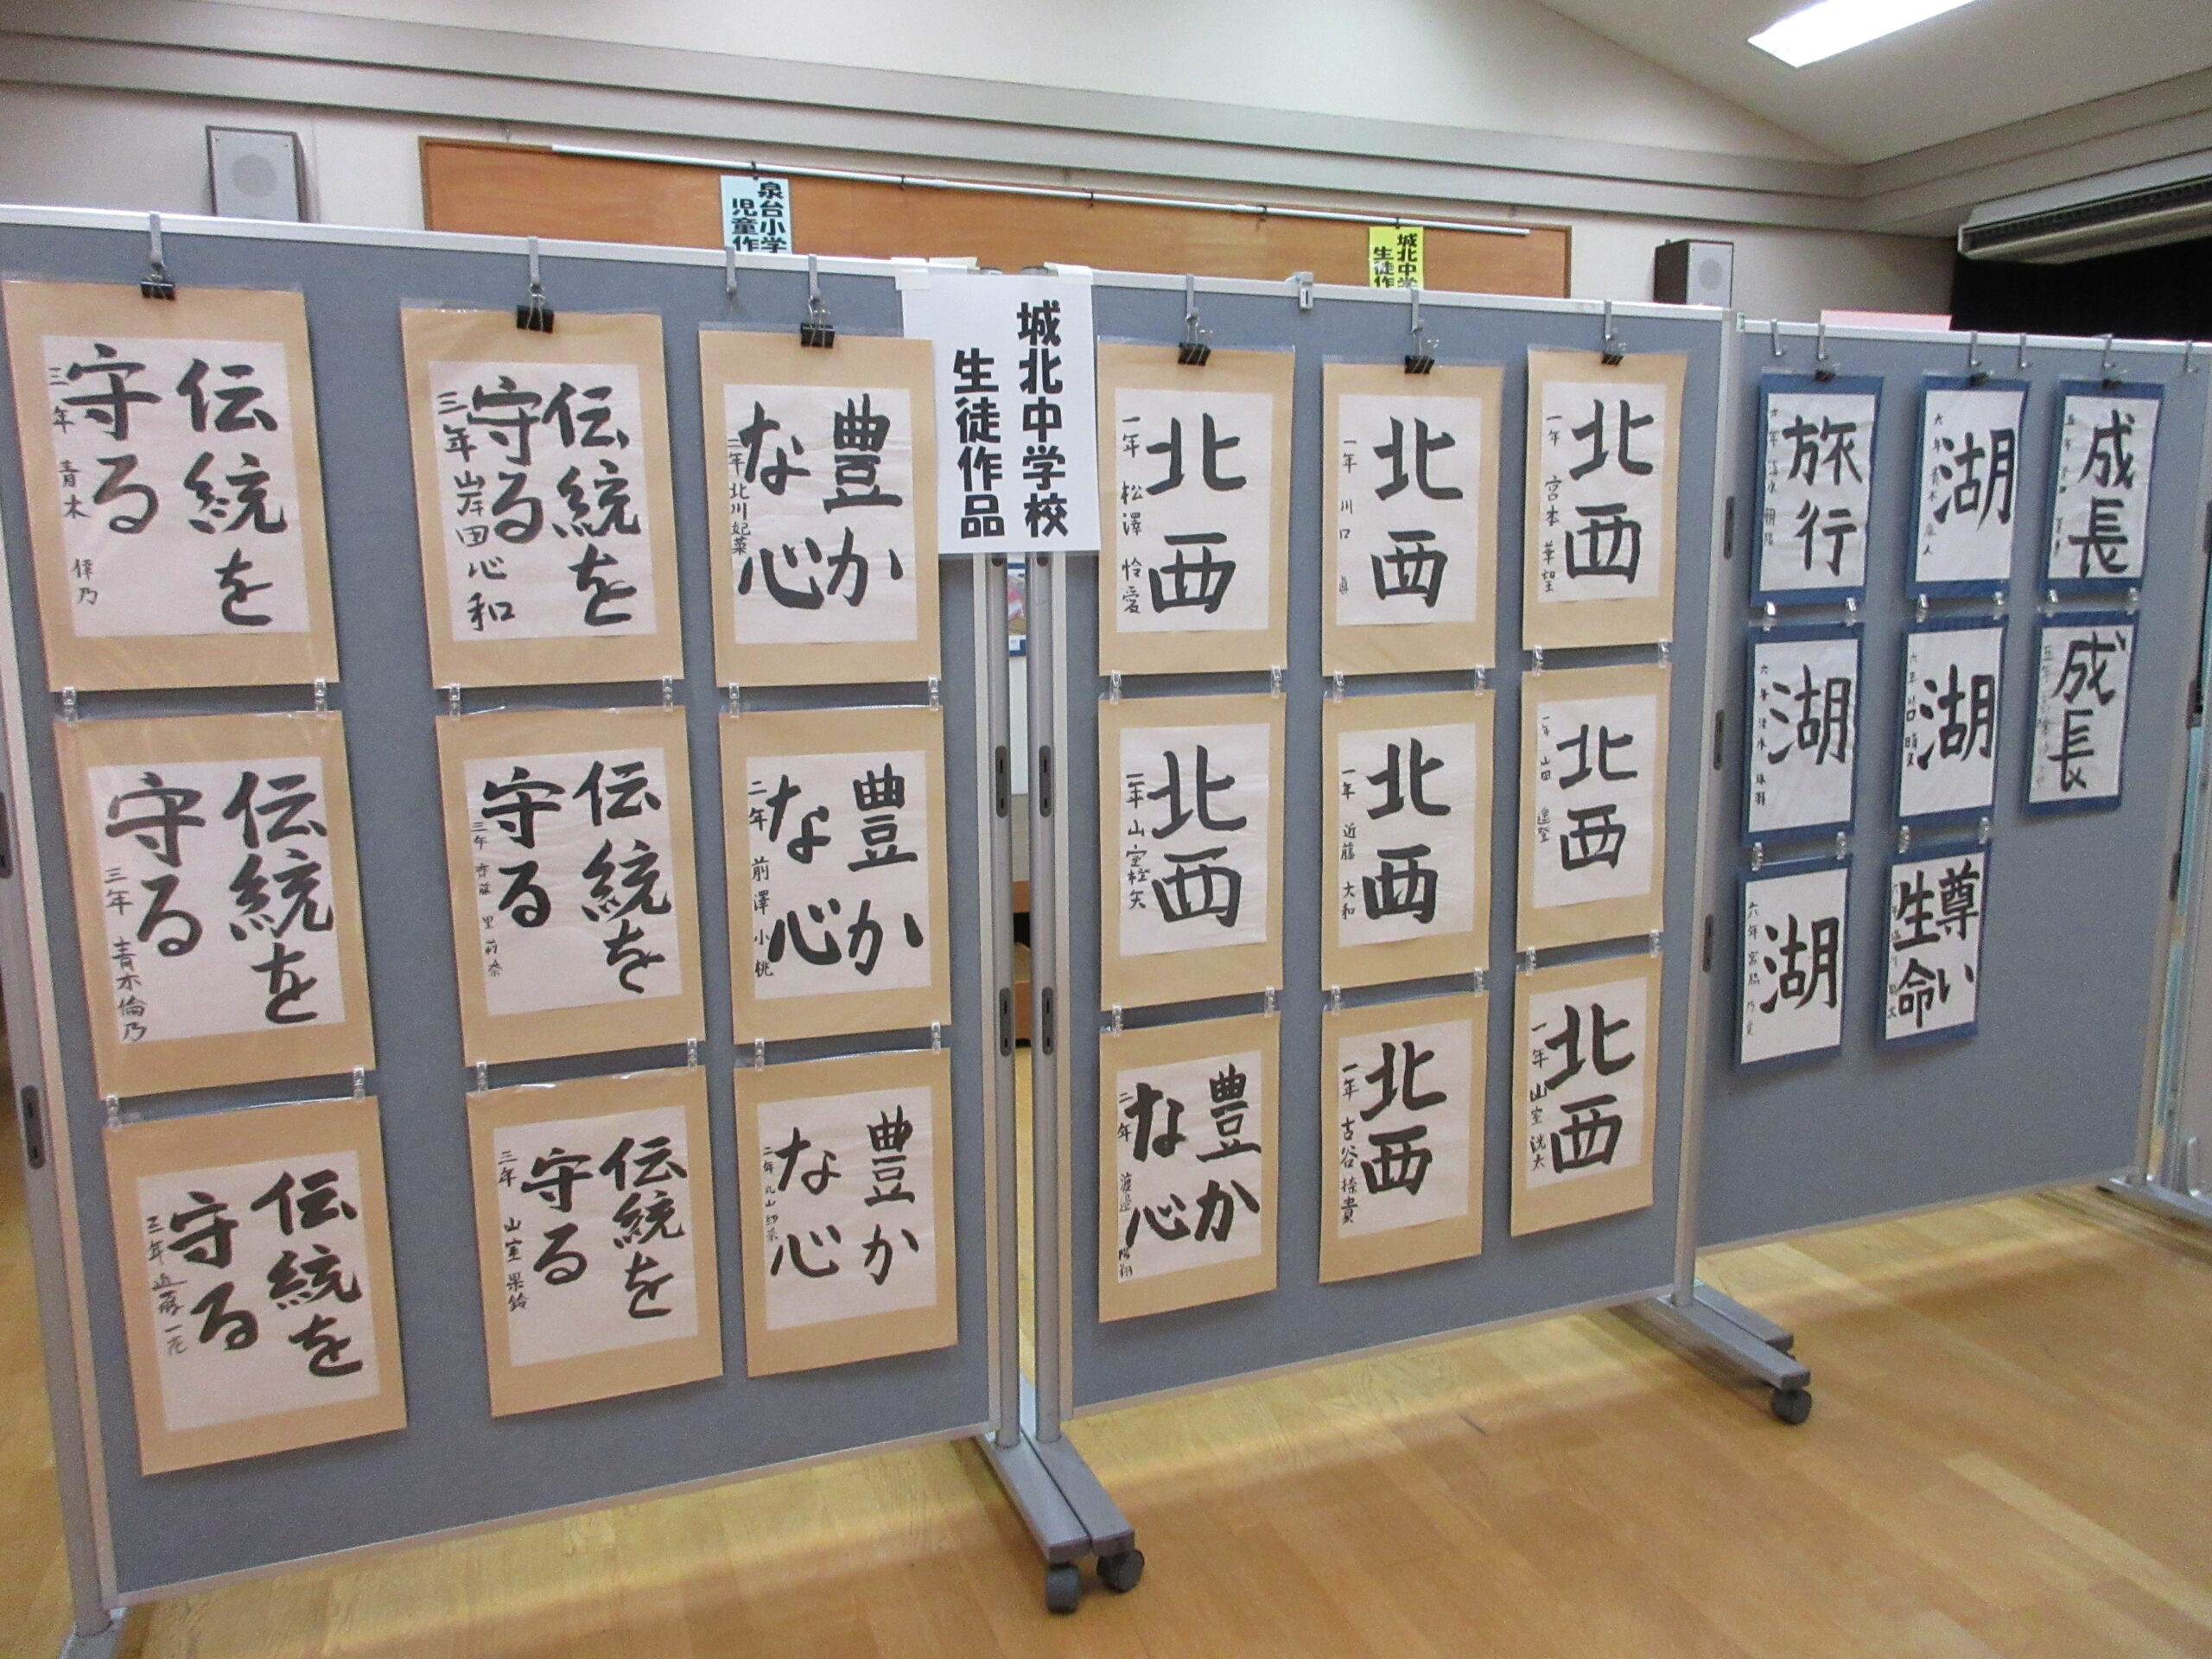 泉台小学
児童作
城北中学
生徒作
城北中学校
生徒作品
伝統を
守る
三年 青木
伝統を
守る
三年 岸田心和
豊か
な心
二年 北川妃菜
北西
一年 松澤 怜愛
北西
一年 川口
北西
一年 宮本 華望
旅行
湖
六年 青木
成長
五年
伝統を
守る
三年 青木倫乃
伝統を
守る
三年 斉藤 里莉奈
豊か
な心
二年 前澤 小桃
北西
一年 山室
北西
一年 近藤 大和
北西
一年 山田
湖
六年 清水
湖
六年 川口 晴久
成長
五年
伝統を
守る
三年 近藤一花
伝統を
守る
三年 山室 果鈴
豊か
な心
二年 丸山紗奈
豊か
な心
二年 渡邉
北西
一年 古谷
北西
一年 山室 洸太
湖
六年 宮脇 乃愛
尊い
生命